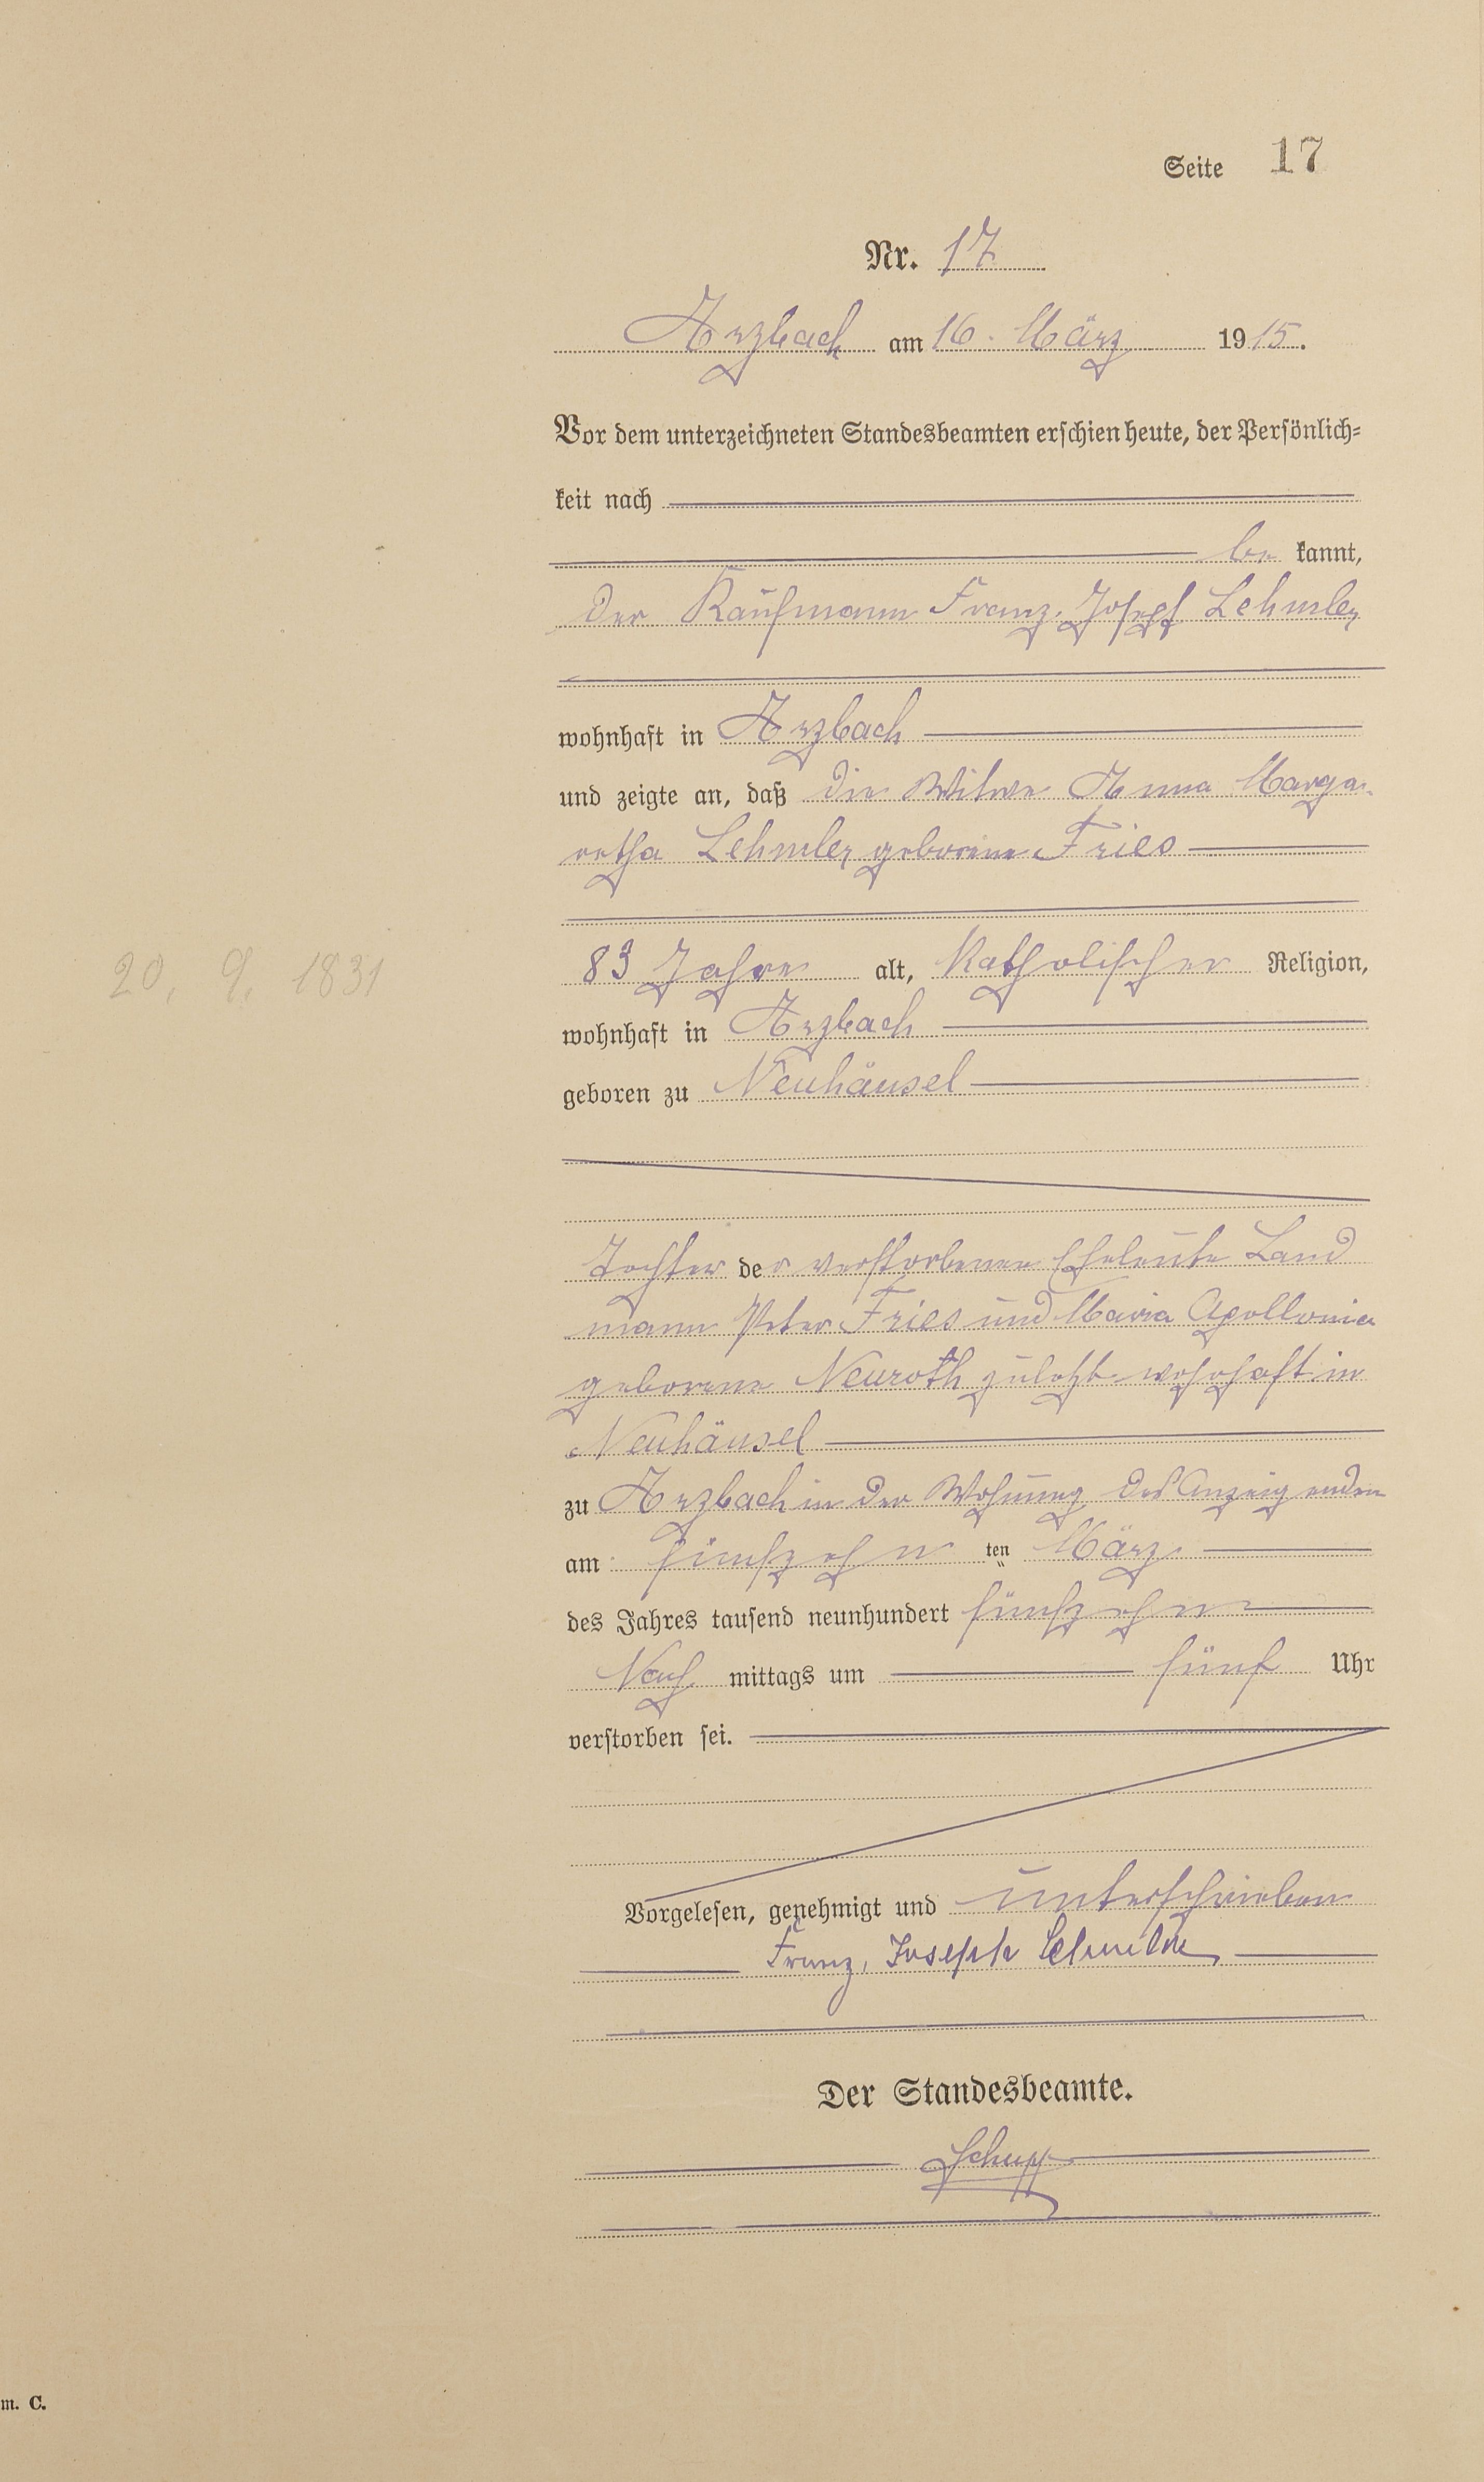 Seite 17
Nr. 17
Arzbach am 16. März 1915.
Vor dem unterzeichneten Standesbeamten erschien heute, der Persönlich-
keit nach
be kannt,
der Kaufmann Franz Josepf Lehmler
wohnhaft in Arzbach
und zeigte an, daß die Witwe Anna Marga-
retha Lehmler geborene Fries
20. 9. 1831
83 Jahre alt, Katholischer Religion,
wohnhaft in Arzbach
geboren zu Neuhäusel
Tochter der verstorbenen Eheleute Land
mann Peter Fries und Maria Apollonia
geborene Neuroth zuletzt wohnhaft in
Neuhäusel
zu Arzbach in der Wohnung des Anzeigenden
am fünfzehn ten März
des Jahres tausend neunhundert fünfzehn
Nach mittags um fünf Uhr
verstorben sei.
Vorgelesen, genehmigt und unterschrieben
Franz, Joseph Lehmler
Der Standesbeamte.
Schupp
m. C.